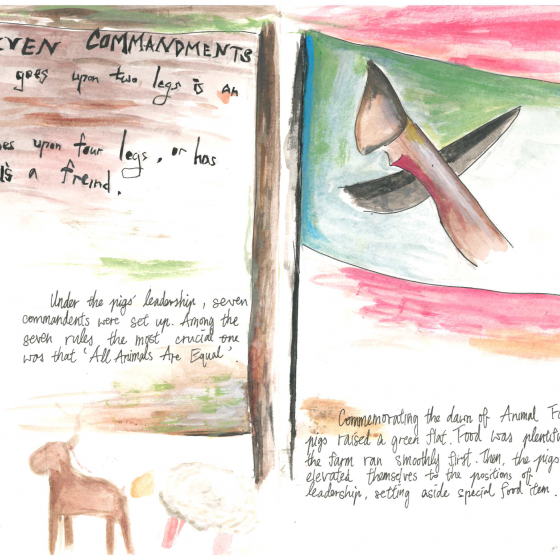 VEN COMMANDMENTS
goes upon two legs is an
es upon four legs, or has
is a freind.
Under the pigs' leadership, seven
commandents were set up. Among the
seven rules, the most crucial one
was that 'All Animals Are Equal'.
Commemorating the dawn of Animal
pigs raised a green flat. Food was plentiful
the farm ran smoothly first. Then, the pigs
elevated themselves to the positions of
leadership, setting aside special food item.